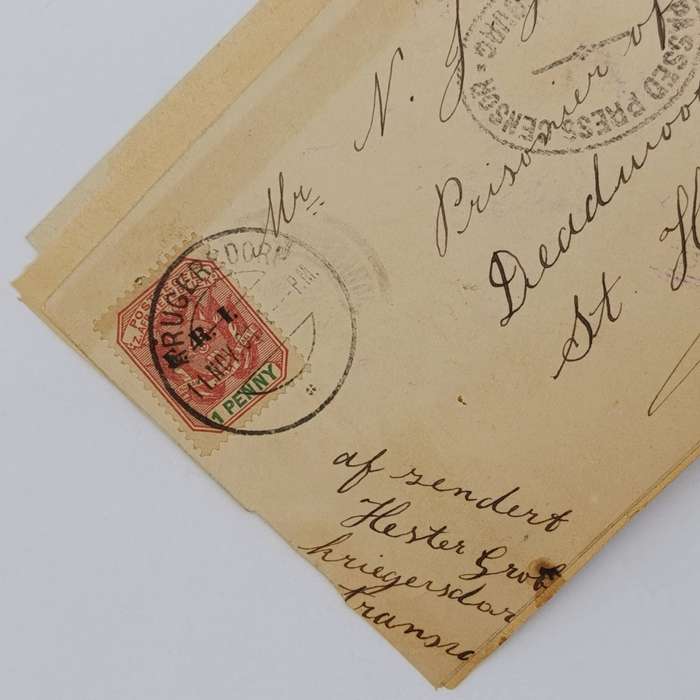 PASSED PRESS CENSOR
Mr N. J
Prisoner of
Deadwood
St. H
KRUGERSDORP
P.M.
11 NOV
POSTZEGEL
Z. AFR.
E. R. I.
1 PENNY
af sendert
Hester Grob
kriegersdor
Transva